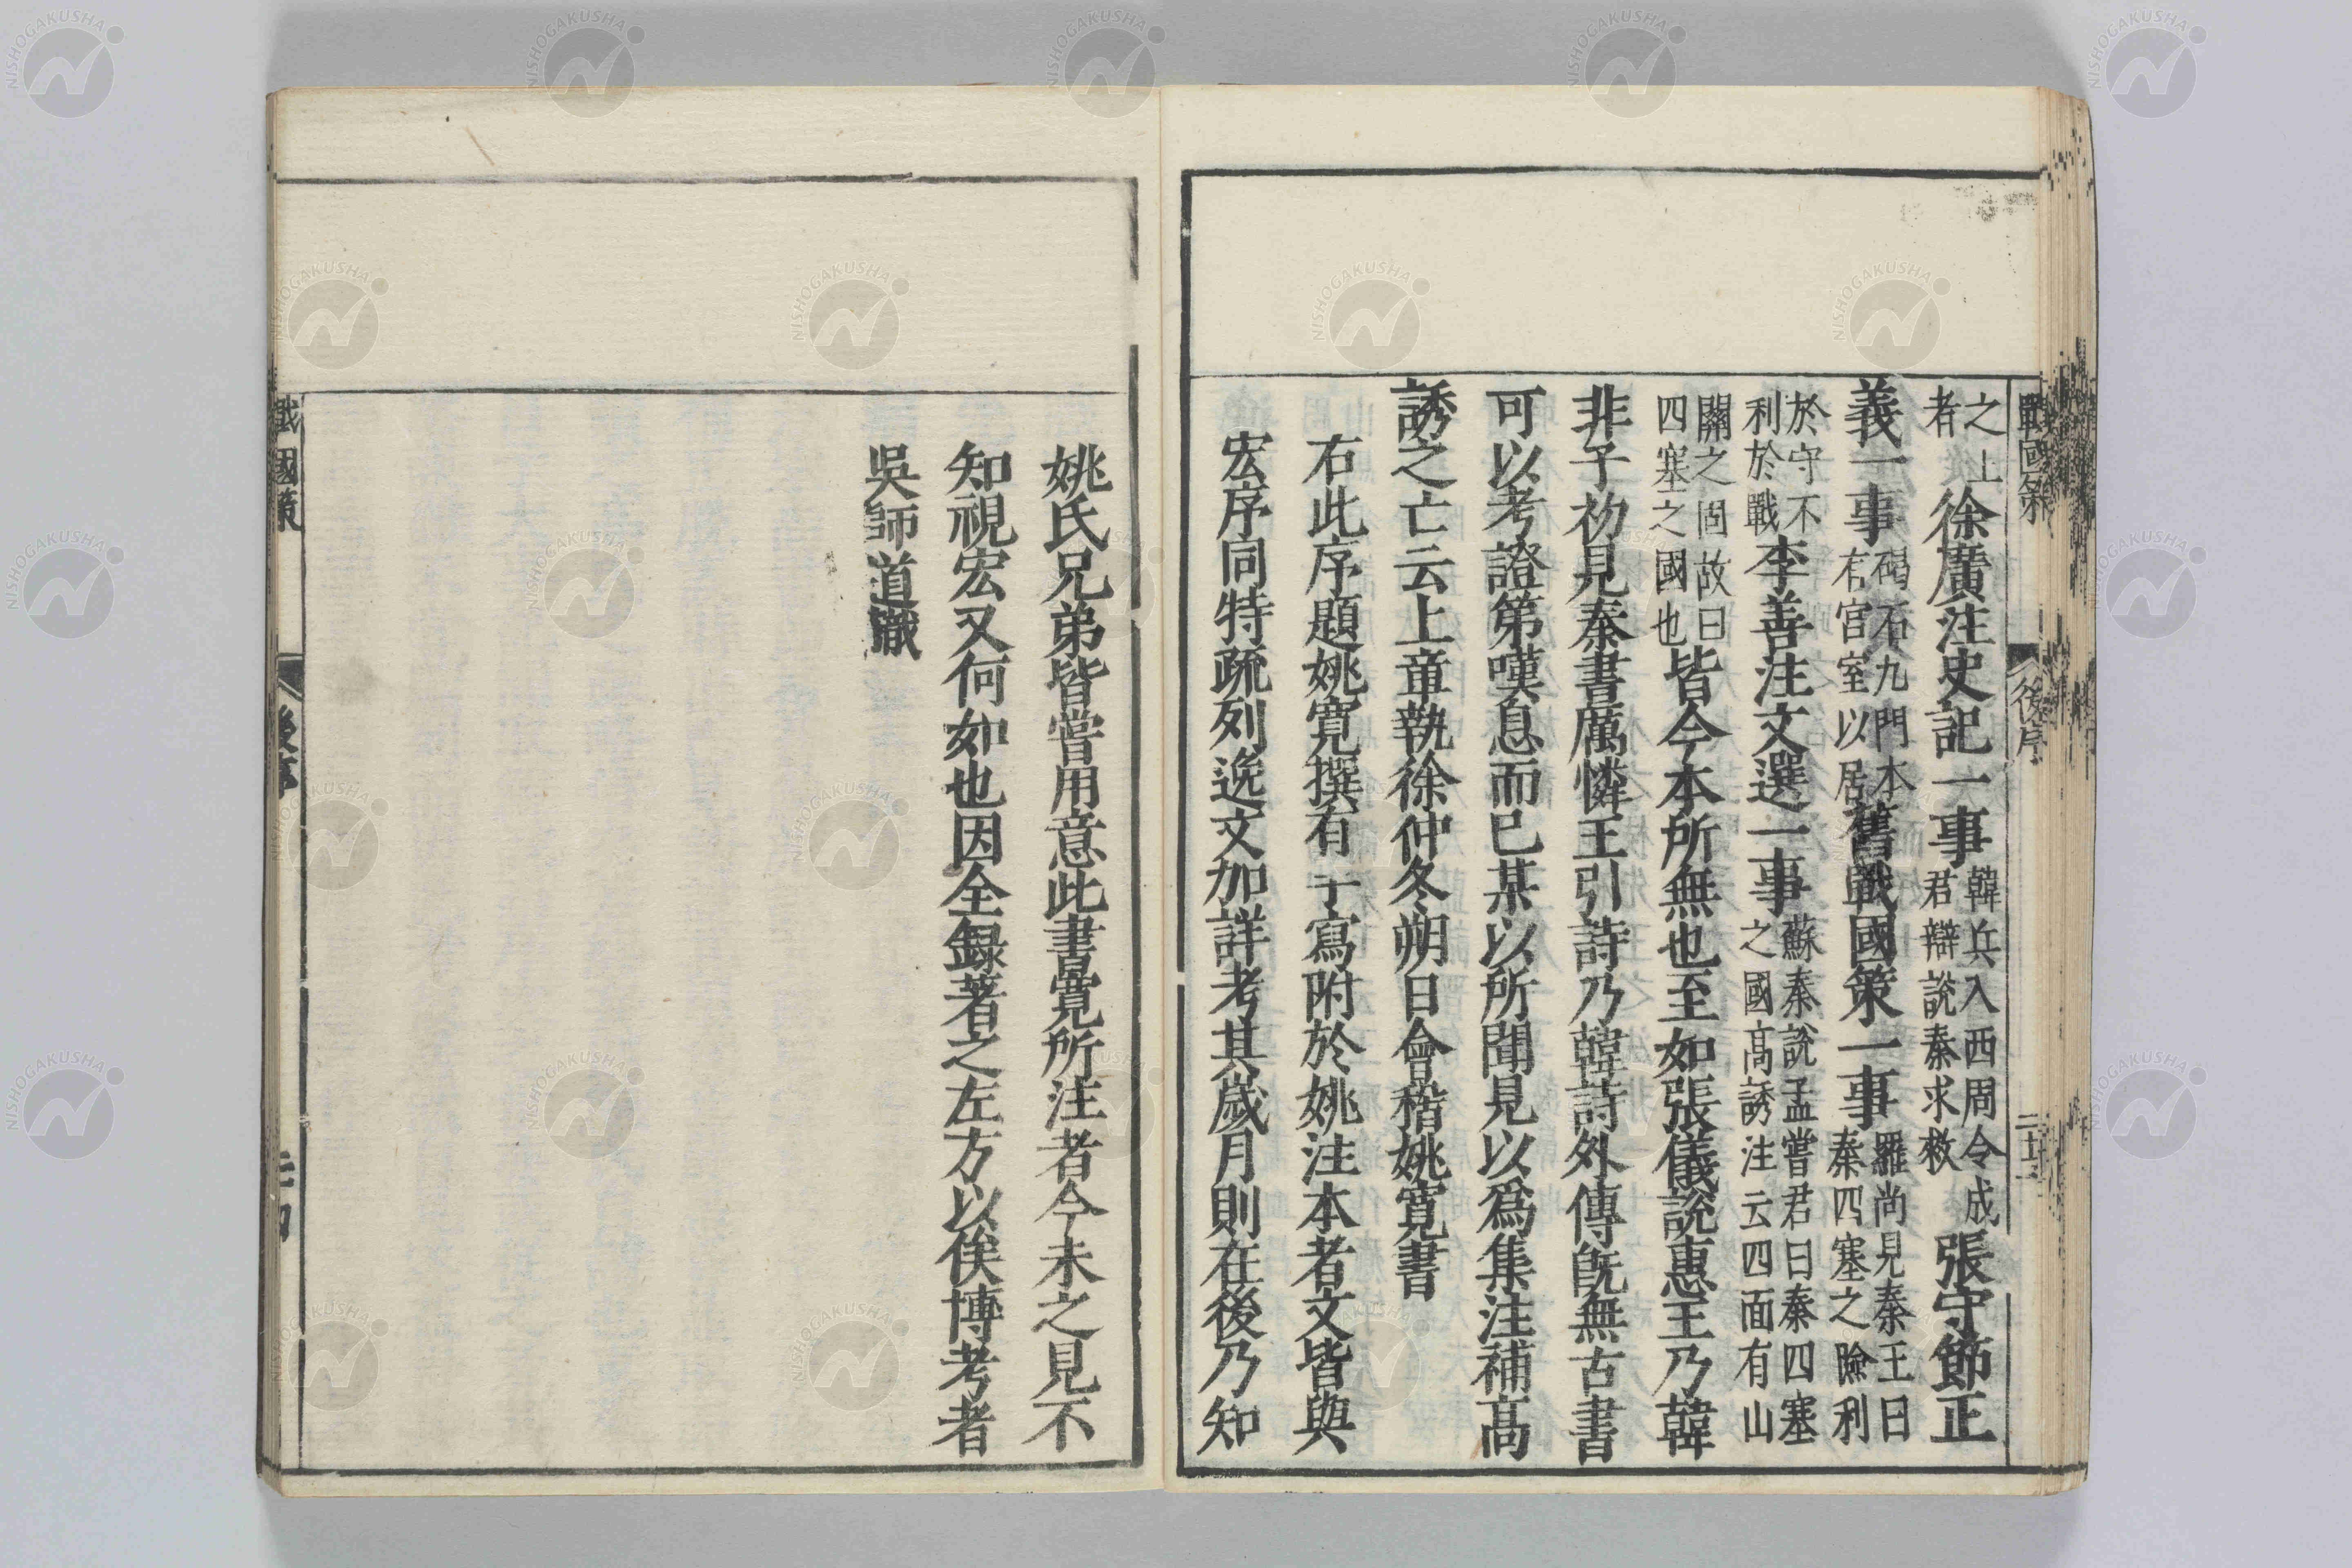 戰國策 後序 二十三
之上者徐廣注史記一事韓兵入西周令成君辯説秦求救張守節正
義一事碣石九門本有宮室以居舊戰國策一事羅尚見秦王曰秦四塞之險利
於守不利於戰李善注文選一事蘇秦説孟嘗君曰秦四塞之國高誘注云四面有山
關之固故曰四塞之國也皆今本所無也至如張儀説惠王乃韓
非子初見秦書厲憐王引詩乃韓詩外傳既無古書
可以考證第嘆息而已某以所聞見以爲集注補高
誘之亡云上章執徐仲冬朔日會稽姚寛書
右此序題姚寛撰有手寫附於姚注本者文皆與
宏序同特疏列逸文加詳考其歲月則在後乃知
姚氏兄弟皆嘗用意此書寛所注者今未之見不
知視宏又何如也因全録著之左方以俟博考者
吳師道識
戰國策 後序 二十四
NISHOGAKUSHA